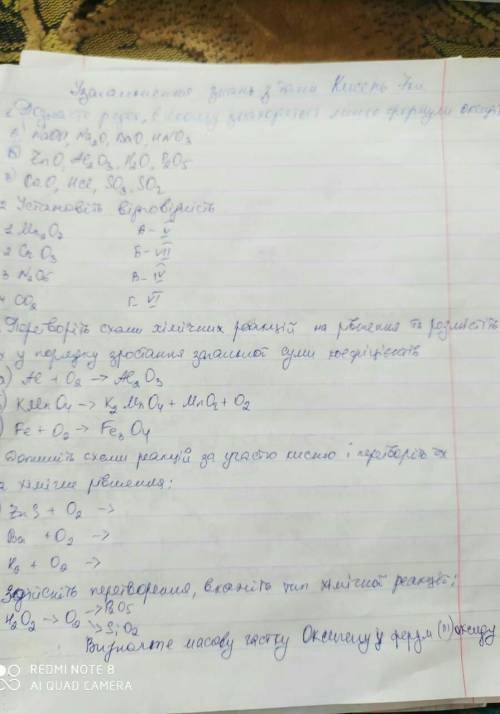 Узагальнення знань з теми Кисень 7кл
Вкажіть рядок, в якому знаходяться лише формули оксидів
А) NaOH, Na2O, BaO, HNO3
Б) ZnO, Al2O3, H2O, P2O5
В) CaO, HCl, SO3, SO2
2 Установіть відповідність
1 Mn2O7 А - V
2 CrO3 Б - VII
3 N2O5 В - IV
4 CO2 Г - VI
Перетворіть схеми хімічних реакцій на рівняння та розмістіть
їх у порядку зростання загальної суми коефіцієнтів
а) Al + O2 → Al2O3
KMnO4 → K2MnO4 + MnO2 + O2
) Fe + O2 → Fe3O4
Допишіть схеми реакцій за участю кисню і перетворіть їх
на хімічні рівняння:
ZnS + O2 →
Ba + O2 →
+ O2 →
Здійсніть перетворення, вкажіть тип хімічної реакції:
H2O2 → O2 → P2O5
↘ SiO2
Визначте масову частку Оксигену у ферум (II) оксиду
REDMI NOTE 8
AI QUAD CAMERA